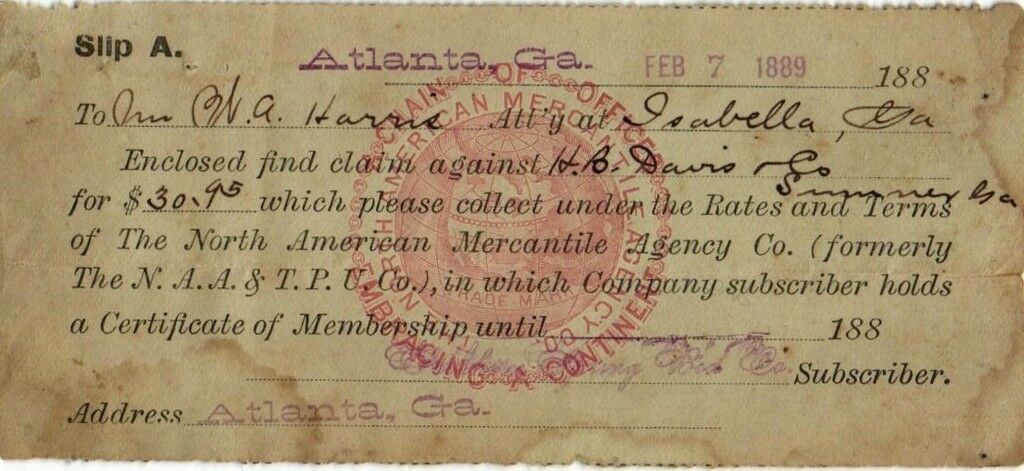 Slip A.
Atlanta, Ga. FEB 7 1889 188
To Mr W. A. Harris Att'y at Isabella, Ga
Enclosed find claim against H. B. Davis & Co
Sumner Ga
for $30.95 which please collect under the Rates and Terms
of The North American Mercantile Agency Co. (formerly
The N. A. A. & T. P. U. Co.), in which Company subscriber holds
a Certificate of Membership until 188
Spring Bed Co. Subscriber.
Address Atlanta, Ga.
CHAIN OF OFFICES EMBRACING A CONTINENT
NORTH AMERICAN MERCANTILE AGENCY CO.
TRADE MARK